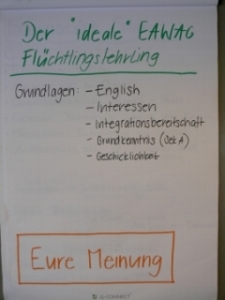 Der "ideale" EAWAG
Flüchtlingslehrling
Grundlagen: - English
- Interessen
- Integrationsbereitschaft
- Grundkenntnis (Sek A)
- Geschicklichkeit
Eure Meinung